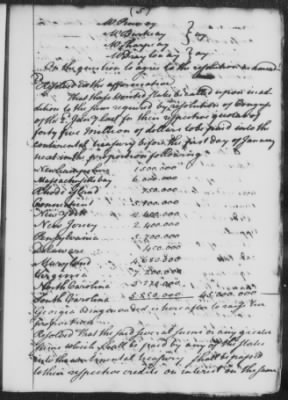 ( 5 )
Mr Penn ay
Mr Burke ay } ay
Mr Sharpe ay
Mr Drayton ay } ay
So the question to agree to the resolution as amended
Resolved in the affirmative
That these United States be called upon in ad
dition to the sum required by resolution of Congress
of the 2d Jany last for their respective quotas of
forty five million of dollars to be paid into the
continental treasury before the first day of January
next in the proportion following
New hampshire 1.500.000
Massachusetts bay 6.000.000
Rhode island 750.000
Connecticut 5.100.000
New York 2.400.000
New Jersey 2.400.000
Pensylvania 5.700.000
Delaware 450.000
Maryland 4.680.000
Virginia 7.200.000
North Carolina
South Carolina 45.000.000
Georgia being invaded hereafter to raise her
proportion
Resolved That the said several sums or any greater
sums which shall be paid by any of the states
into the continental treasury shall be passed
to their respective credits on interest in the same